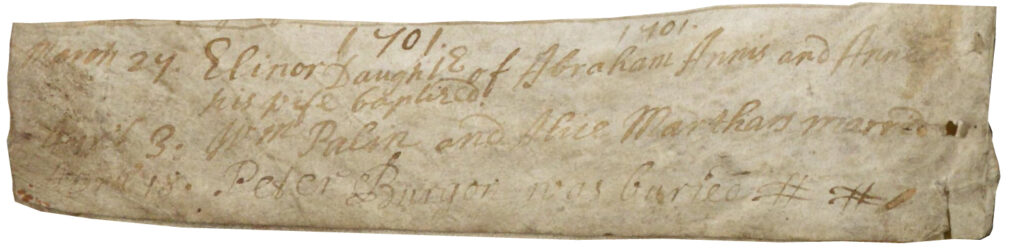 1701. 1701.
March 27. Elinor Daught^E of Abraham Annis and Anne
his wife baptized.
April 3. W^m Palin and Alice Marthars married
April 18. Peter Burgor was buried # #